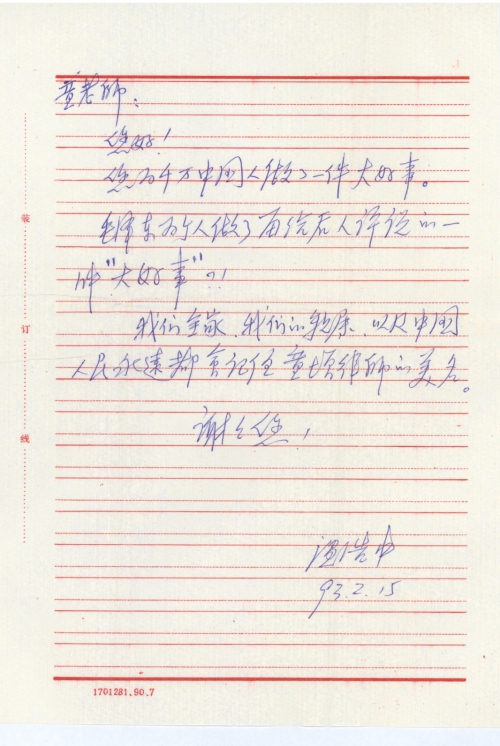 童老师：
您好！
您为千万中国人做了一件大好事。
毛泽东为个人做了留给后人评说的一
件"大好事"？！
我们全家、我们的亲属、以及中国
人民永远都会记住童大律师的美名。
谢谢您！
中
93.2.15
装
订
线
1701281.90.7